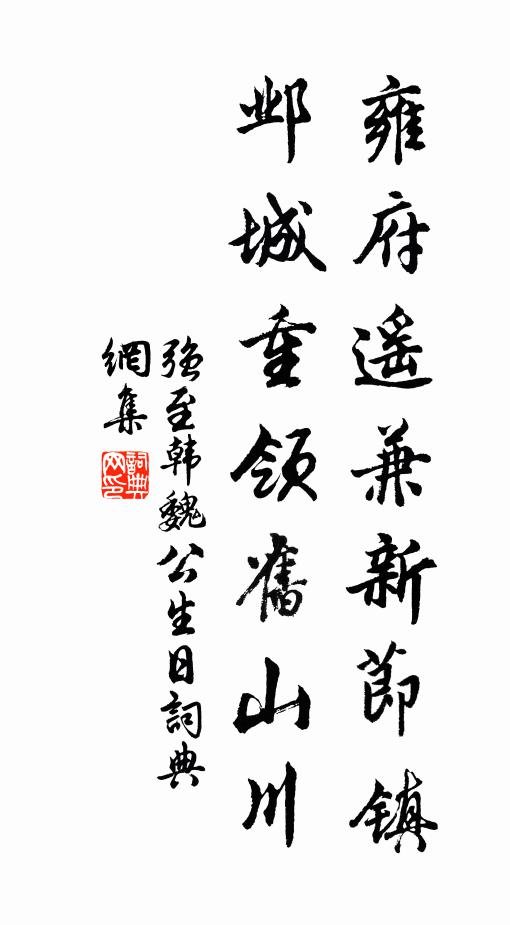 雍府遥兼新節鎮
邺城重領舊山川
强至韩魏公生日詞典
網集
詞典网印